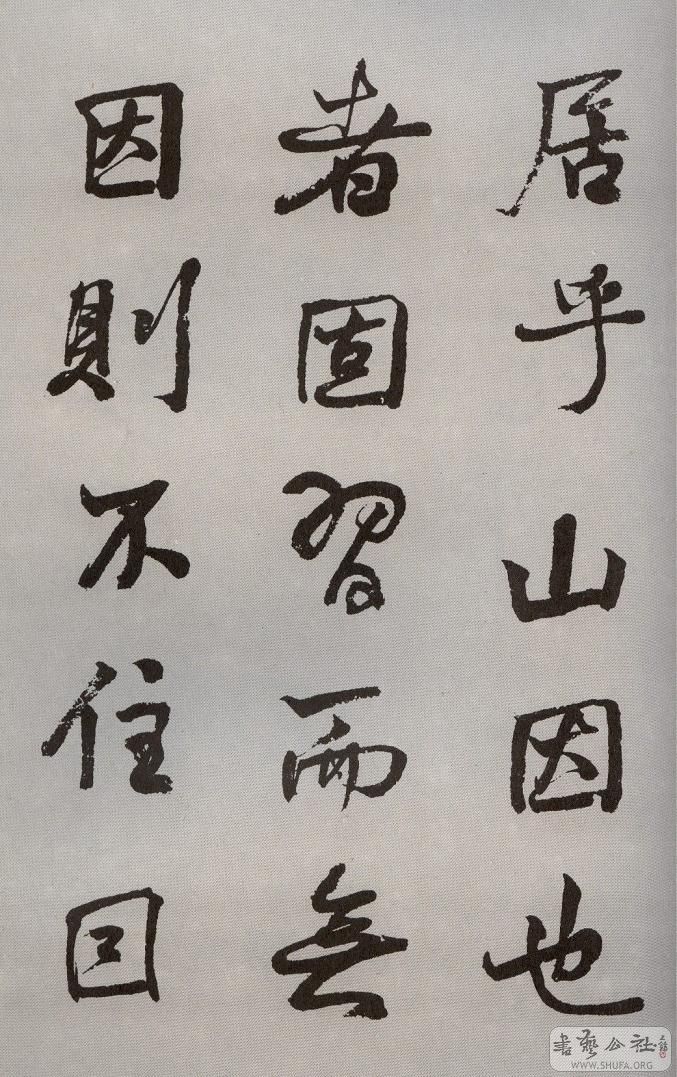 居乎山因也
者固習而無
因則不住回
書藝公社
WWW.SHUFA.ORG